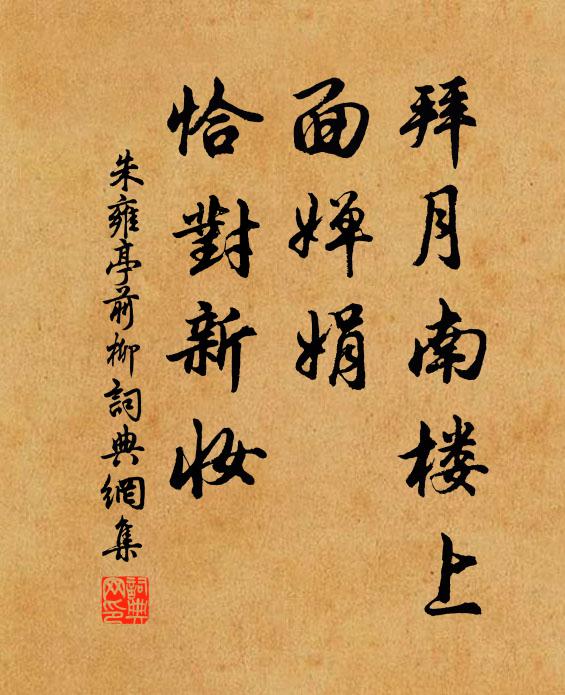 拜月南楼上
面婵娟
恰對新妆
朱雍亭前柳詞典網集
詞典网印